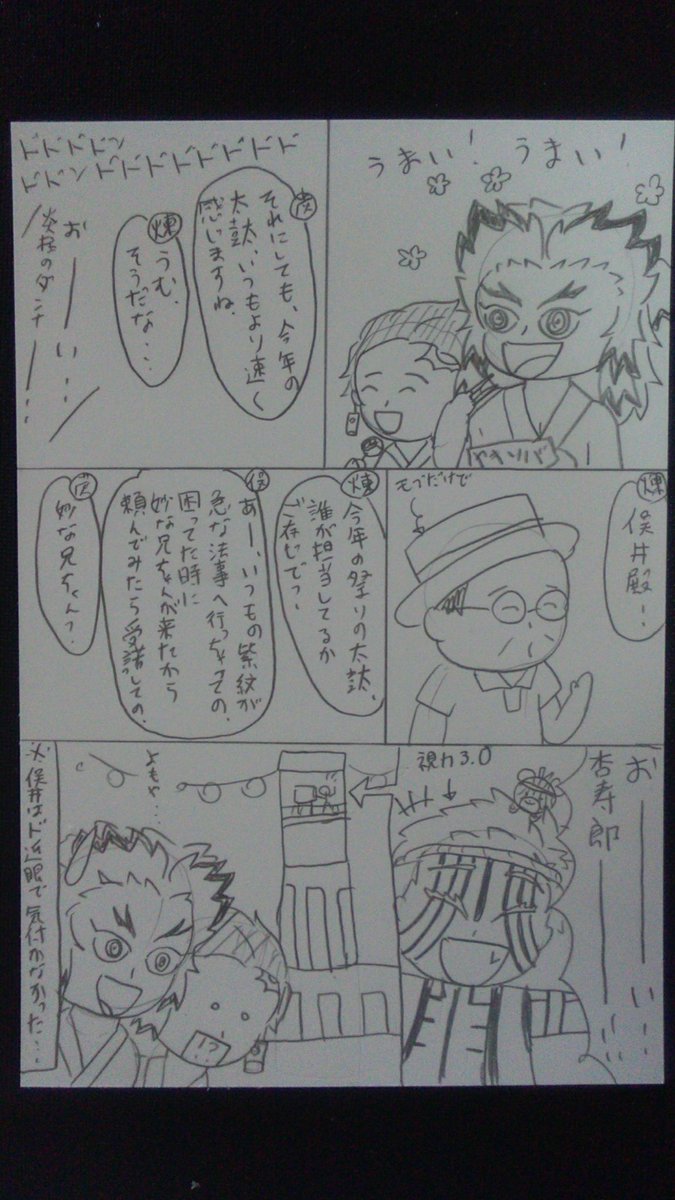 うまい! うまい!
ヤキソバ
ドドドドン
ドドンドドドドドドドド
炭
それにしても、今年の
太鼓、いつもより速く
感じますね。
煉
うむ、
そうだな…
おーい…
炎柱のダンナー…
煉
俣井殿!
煉
今年の祭りの太鼓、
誰が担当してるか
ご存じで?
俣
あー、いつもの紫紋が
急な法事へ行っちゃっての、
困ってた時に
妙な兄ちゃんが来たから
頼んでみたら受諾しての、
炭
妙な兄ちゃん?
おーい…
杏寿郎ー
視力3.0
よもや…
!?
※俣井はド近眼で気付かなかった…